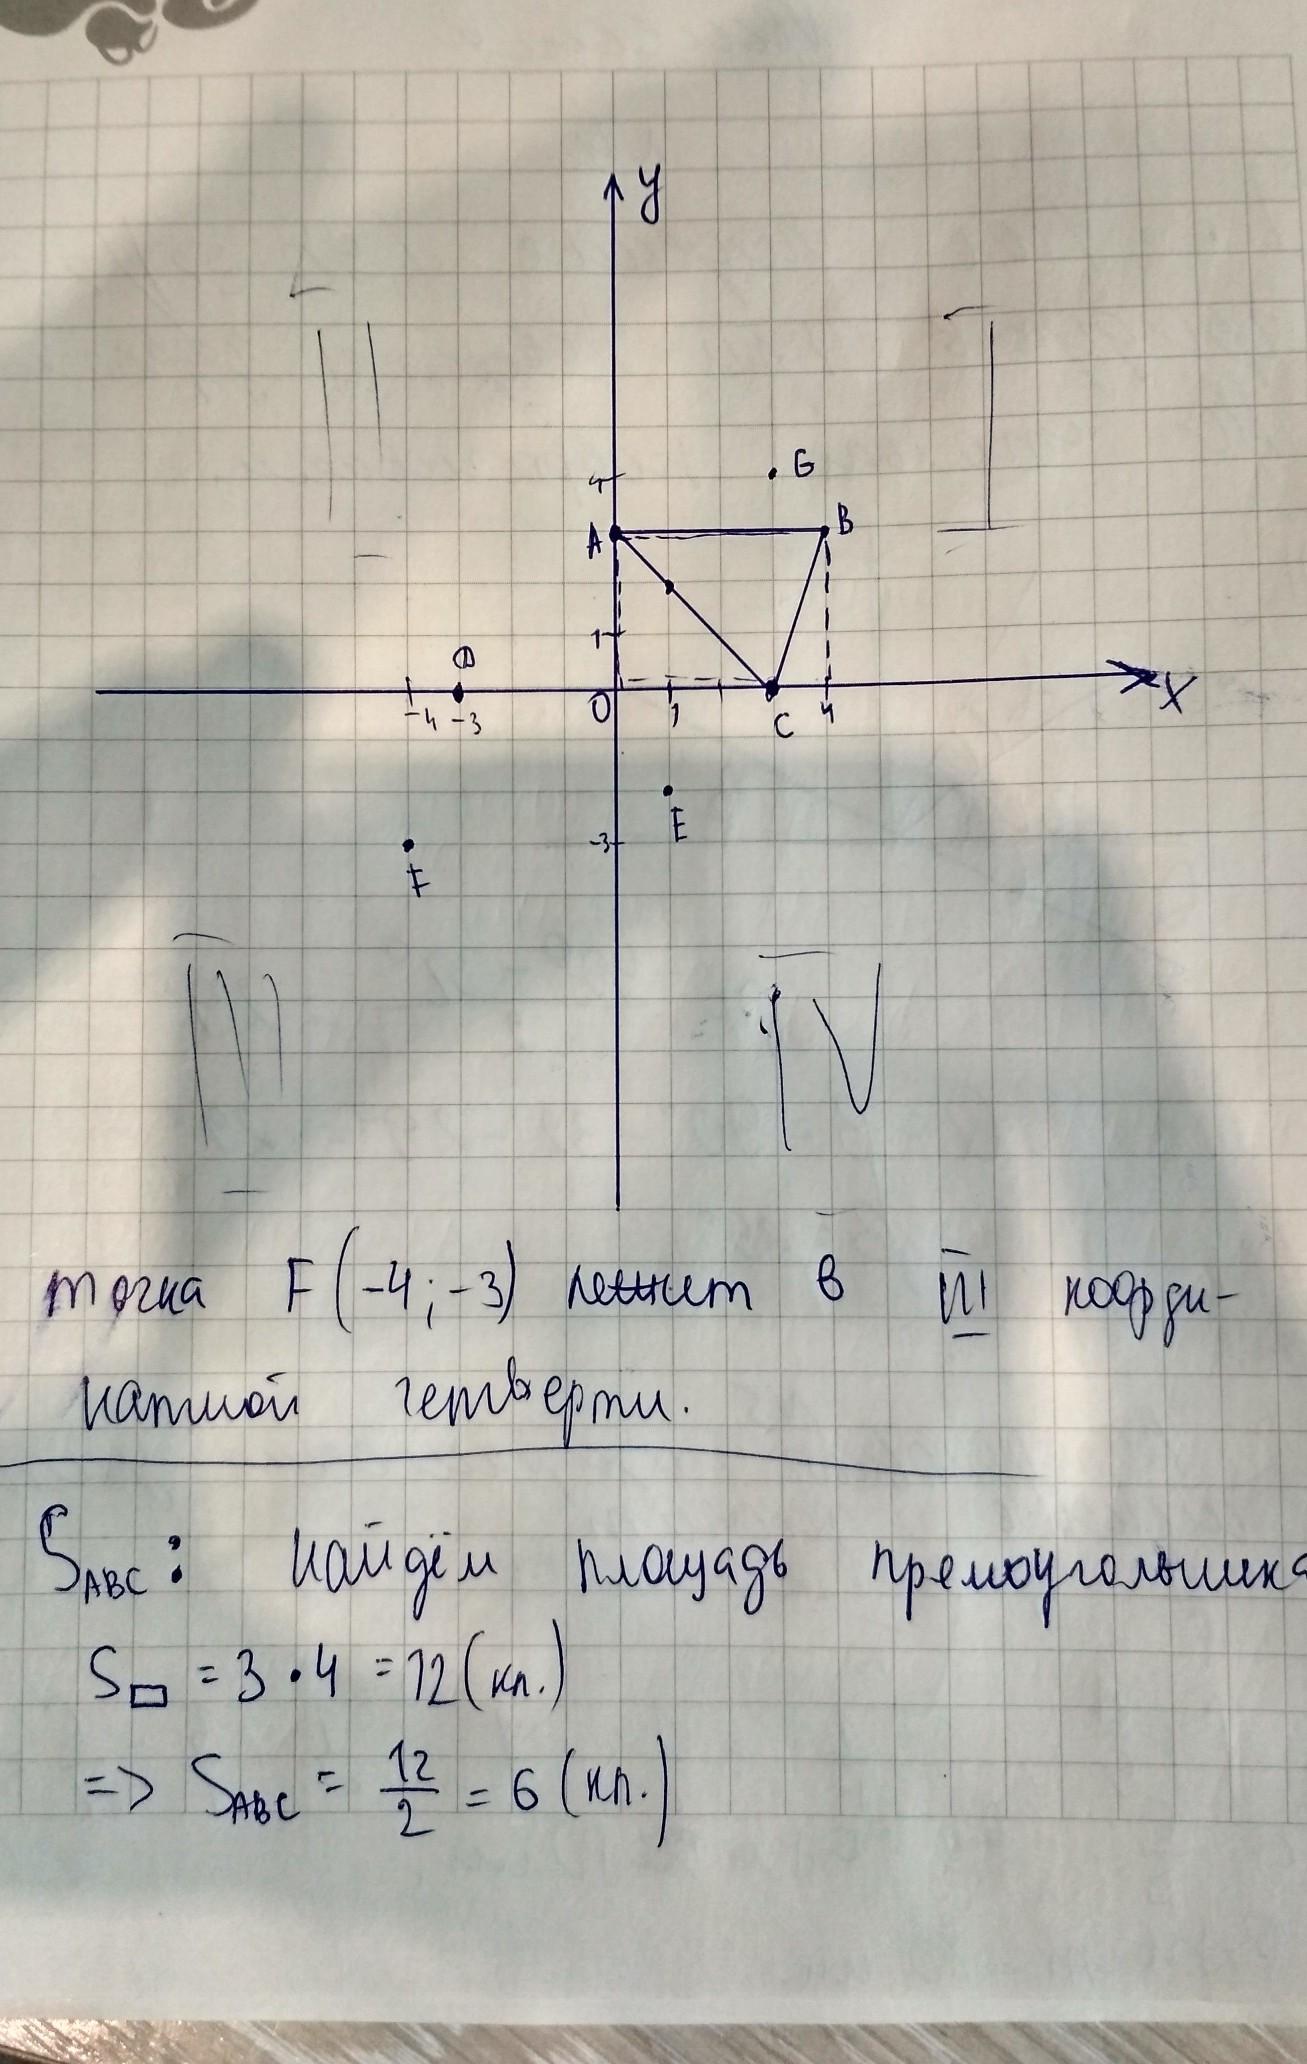 y
II
I
4
G
A
B
1
D
-4 -3
0
1
C
4
x
E
-3
F
III
IV
точка F(-4;-3) лежит в III коорди-
натной четверти.
S_ABC: найдём площадь прямоугольника
S▭ = 3 · 4 = 12 (кл.)
=> S_ABC = 12/2 = 6 (кл.)